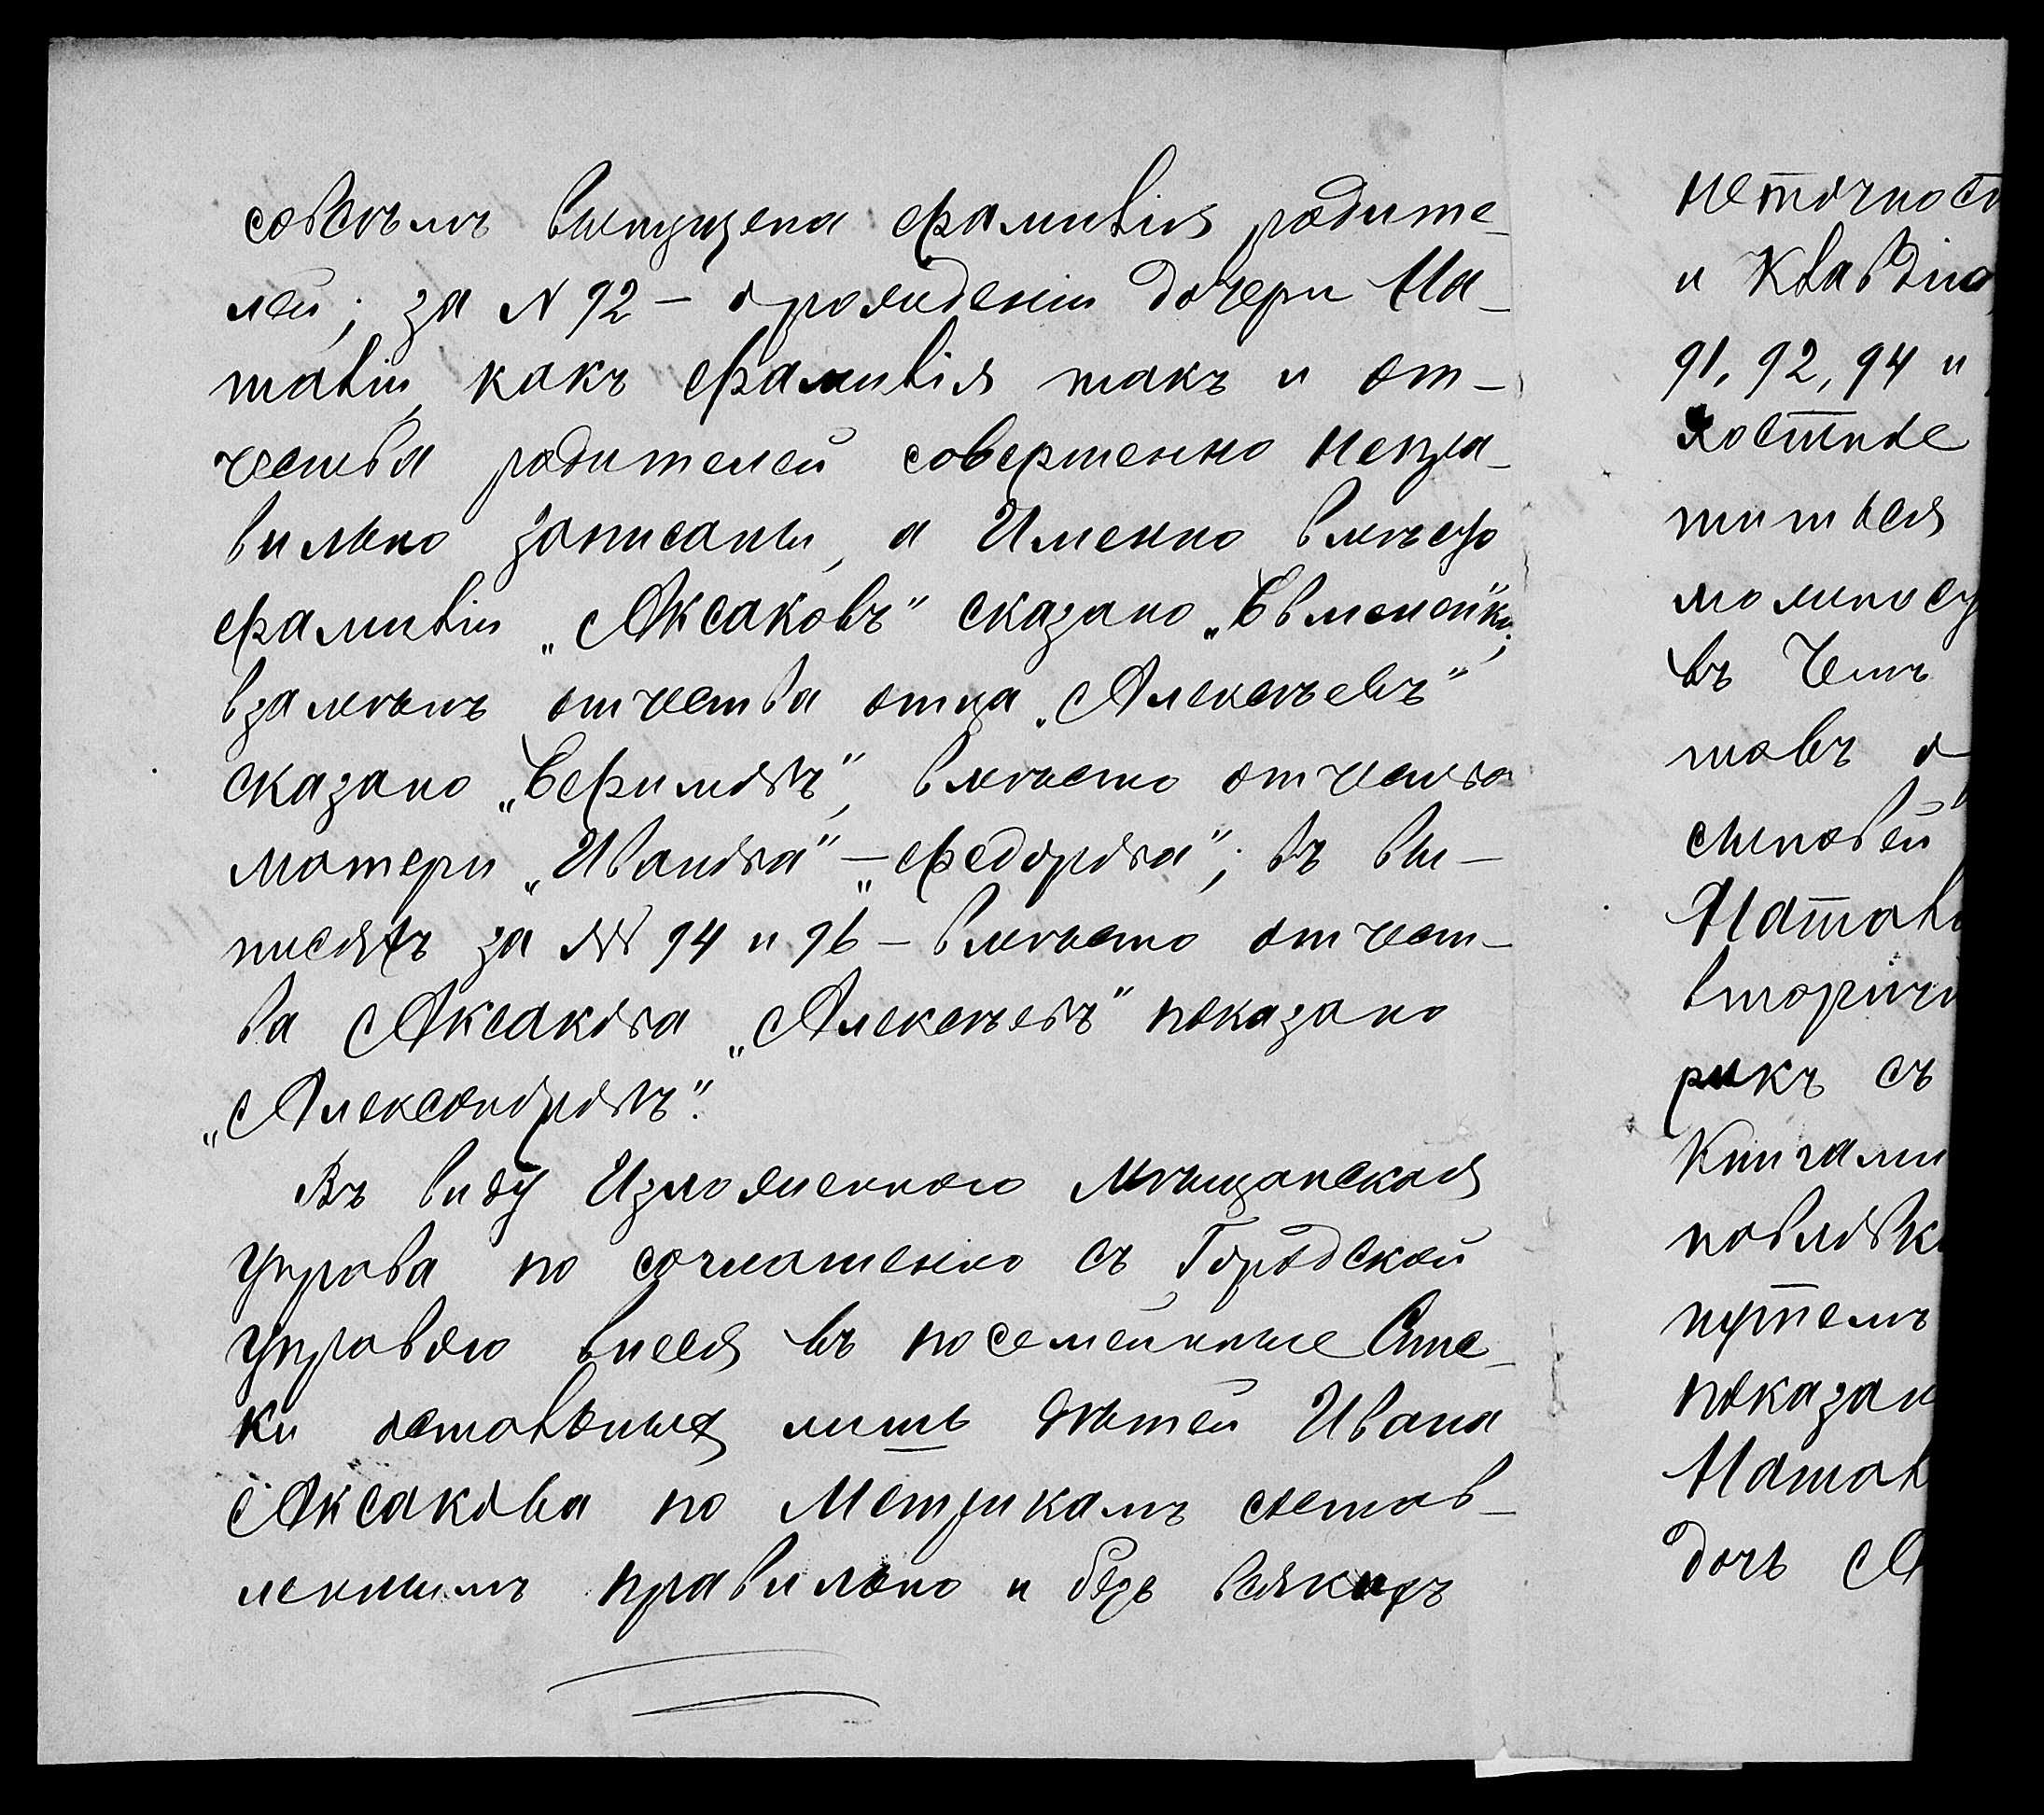 совсѣмъ выпущена фамилія родите-
лей; за N 92 – о рожденіи дочери На-
таліи, какъ фамилія такъ и от-
чества родителей совершенно непра-
вильно записаны, а Именно вмѣсто
фамиліи „Аксаковъ" сказано
взамѣнъ отчества отца „Алексѣевъ"
сказано „Ефимовъ", вмѣсто отчества
матери „Иванова" – „Федорова"; въ вы-
писяхъ за NN 94 и 96 – вмѣсто отчест-
ва Аксакова „Алексѣевъ" показано
„Александровъ".
Въ виду Изложеннаго Мѣщанская
Управа по соглашенію съ Городской
Управою внеся въ посемейные Спис-
ки остальныхъ лишь дѣтей Ивана
Аксакова по Метрикамъ состав-
леннымъ правильно и безъ всякихъ
неточност
и Клавдію
91, 92, 94 и
титься
въ Чемъ
товъ о
сыновей
Натал
вторичн
рикъ съ
Книгами
путемъ
показан
Натал
дочь А